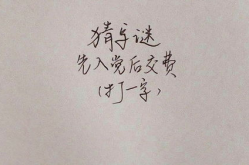 猜字谜
先入党后交费
(打一字)